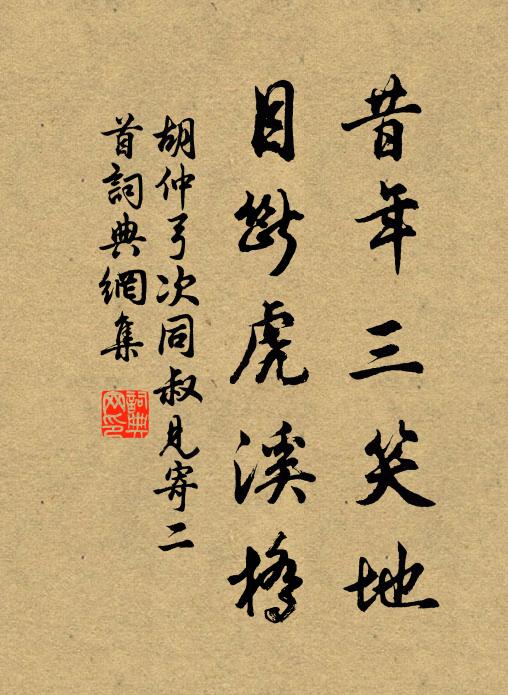 昔年三笑地
目斷虎溪橋
胡仲弓次同叔見寄二
首詞典網集
詞典
网印